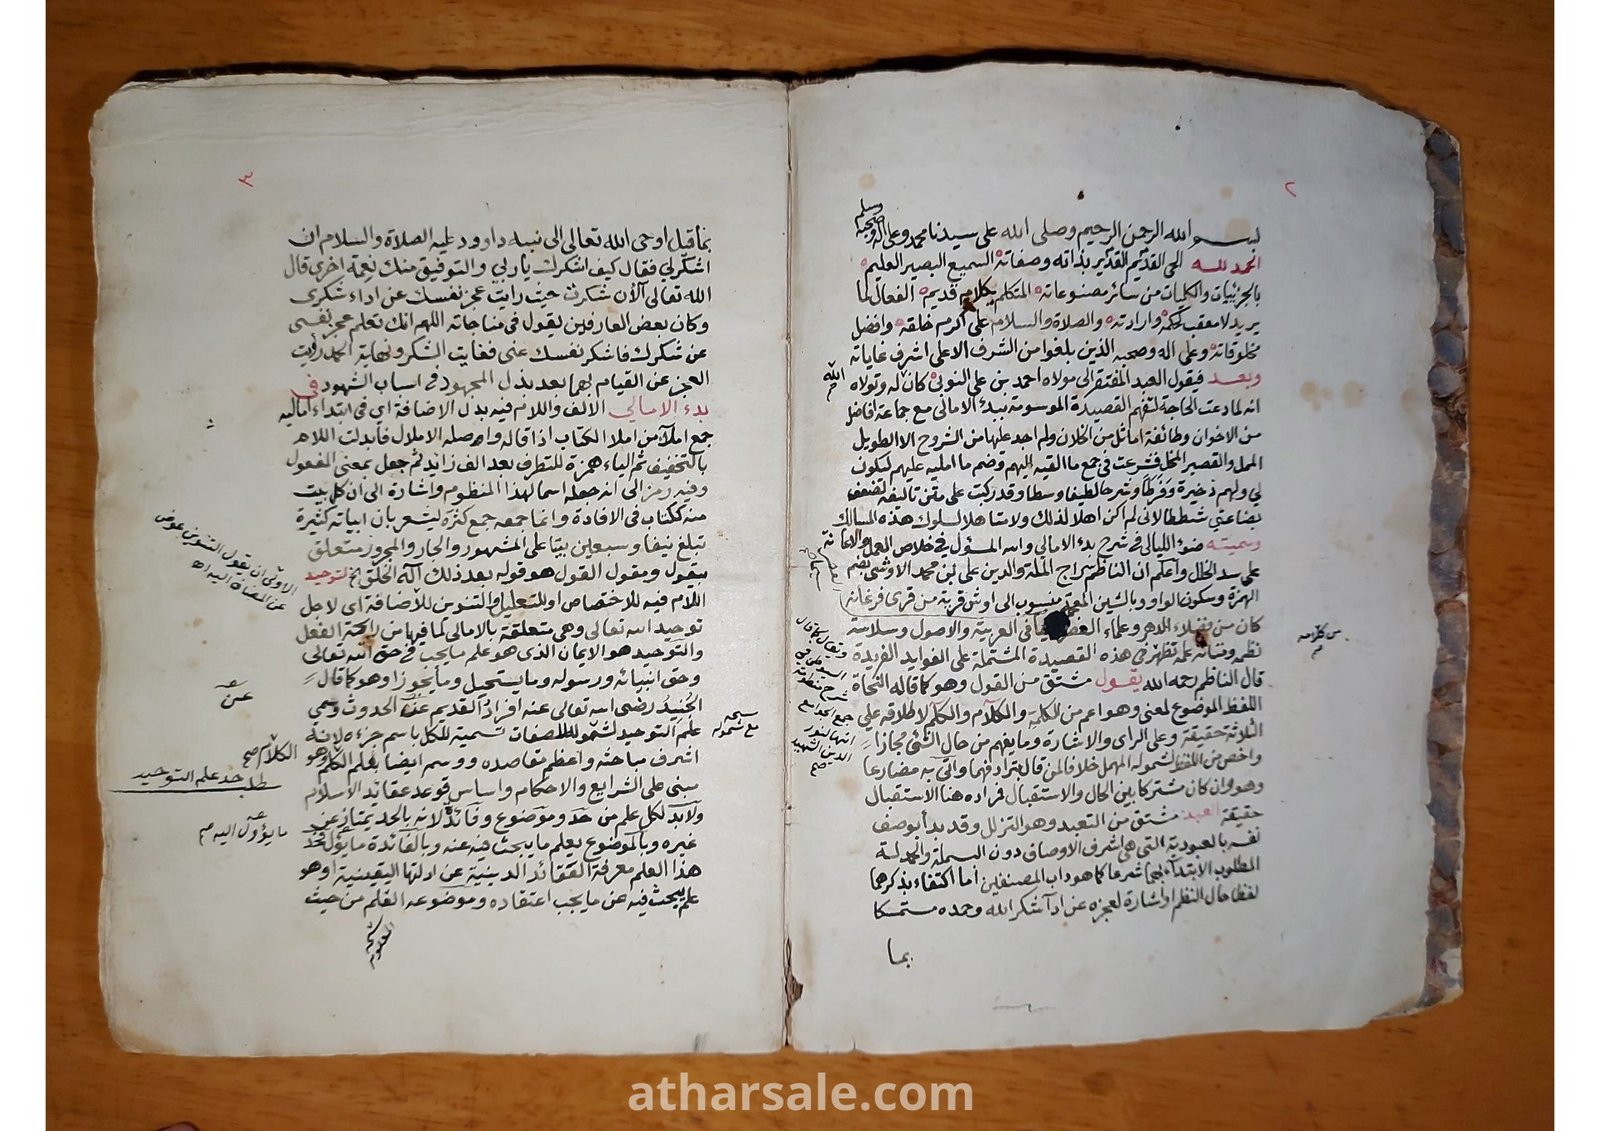 ٢
بسم الله الرحمن الرحيم وصلى الله على سيدنا محمد وعلى اله وصحبه وسلم
الحمد لله الحي القديم القدير بذاته وصفاته السميع البصير العليم
بالجزئيات والكليات من سائر مصنوعاته المتكلم بكلام قديم الفعال لما
يريد لا معقب لحكمه وارادته والصلاة والسلام على اكرم خلقه وافضل
مخلوقاته وعلى اله وصحبه الذين بلغوا من الشرف الاعلى اشرف غاياته
وبعد فيقول العبد المفتقر الى مولاه احمد بن على النوبى كان له وتولاه
الله
انه لما دعت الحاجة لتفهيم القصيدة الموسومة ببدء الامالى مع جماعة افاضل
من الاخوان وطائفة اماثل من الخلان ولم اجد عليها من الشروح الا الطويل
الممل والقصير المخل فشرعت في جمع ما القيه اليهم وضم ما امليه عليهم ليكون
لي ولهم ذخيرة وفرطا وشرحا لطيفا وسطا وقد ركبت على متن تاليفه لضعف
بضاعتي شططا لانى لم اكن اهلا لذلك ولا متاهلا لسلوك هذه المسالك
وسميته ضوء الليالى في شرح بدء الامالي والله المسؤل في خلاص العمل والاعانة
على سد الخلل واعلم ان الناظم سراج الملة والدين على بن محمد الاوشى بضم
الهمزة وسكون الواو وبالشين المعجمة منسوب الى اوش قرية من قرى فرغانة
كان من فضلاء الدهر وعلماء العصر في العربية والاصول وسلاسة
نظمه ومتانة علمه تظهر في هذه القصيدة المشتملة على الفوايد الفريدة
من كلامه
قال الناظم رحمه الله يقول مشتق من القول وهو كما قاله النحاة
اللفظ الموضوع لمعنى وهو اعم من الكلمة والكلام والكلم لاطلاقه على
الثلاثة حقيقة وعلى الراى والاشارة وما يفهم من حال الشئ مجازا
واخص من اللفظ لشموله المهمل خلافا لمن قال بترادفهما واتى به مضارعا
وهو وان كان مشتركا بين الحال والاستقبال فمراده هنا الاستقبال
حقيقة العبد مشتق من التعبد وهو التذلل وقد بدأ بوصف
نفسه بالعبودية التى هى اشرف الاوصاف دون البسملة والحمدلة
المطلوب الابتداء بهما شرعا كما هو داب المصنفين اما اكتفاء بذكرهما
لفظا حال النظم او اشارة لعجزه عن اداء شكر الله وحمده متمسكا
بما
٣
بما قيل اوحى الله تعالى الى نبيه داوود عليه الصلاة والسلام ان
اشكرني فقال كيف اشكرك يا ربي والتوفيق منك نعمة اخرى قال
الله تعالى الآن شكرت حيث رايت عجز نفسك عن اداء شكرى
وكان بعض العارفين يقول في مناجاته اللهم انك تعلم عجز نفسى
عن شكرك فاشكر نفسك عنى فغايت الشكر ونهاية الحمد رؤيت
العجز عن القيام بهما بعد بذل المجهود في اسباب الشهود في
بدء الامالي الالف واللام فيه بدل الاضافة اي في ابتداء اماليه
جمع املآ من املا الكتاب اذا قاله واصله الاملال فابدلت اللام
بالتخفيف ثم الياء همزة للتطرف بعد الف زائد ثم جعل بمعنى المفعول
وفيه رمز الى انه جعله اسما لهذا المنظوم واشارة الى ان كل بيت
منه ككتاب في الافادة وانما جمعه جمع كثرة ليشعر بان ابياته كثيرة
تبلغ نيفا وسبعين بيتا على المشهور والجار والمجرور متعلق
بيقول ومقول القول هو قوله بعد ذلك اله الخلق الخ لتوحيد
اللام فيه للاختصاص او للتعليل والتنوين للاضافة اى لاجل
توحيد الله تعالى وهى متعلقة بالامالى لما فيها من رائحة الفعل
والتوحيد هو الايمان الذى هو علم ما يجب في حق الله تعالى
وحق انبيائه ورسوله وما يستحيل وما يجوز وهو كما قال
الجنيد رضى الله تعالى عنه افراد القديم عن الحدوث وسمى
علم التوحيد لشموله للصفات تسمية للكل باسم جزءه لانه
اشرف مباحثه واعظم مقاصده ووسم ايضا بعلم الكلام وهو
مبنى على الشرايع والاحكام واساس قوعد عقائد الاسلام
ولابد لكل علم من حد وموضوع وفائدة لانه بالحد يمتاز عن
غيره وبالموضوع يعلم ما يبحث فيه عنه وبالفائدة ما يؤل فحد
هذا العلم معرفة العقائد الدينية عن ادلتها اليقينية او هو
علم يبحث فيه عن ما يجب اعتقاده وموضوعه العلم من حيث
الاولى ان يقول التنوين عوض
عن المضاف اليه اه
عن
الكلام صح
مطلب حد علم التوحيد
ما يؤول اليه م
atharsale.com